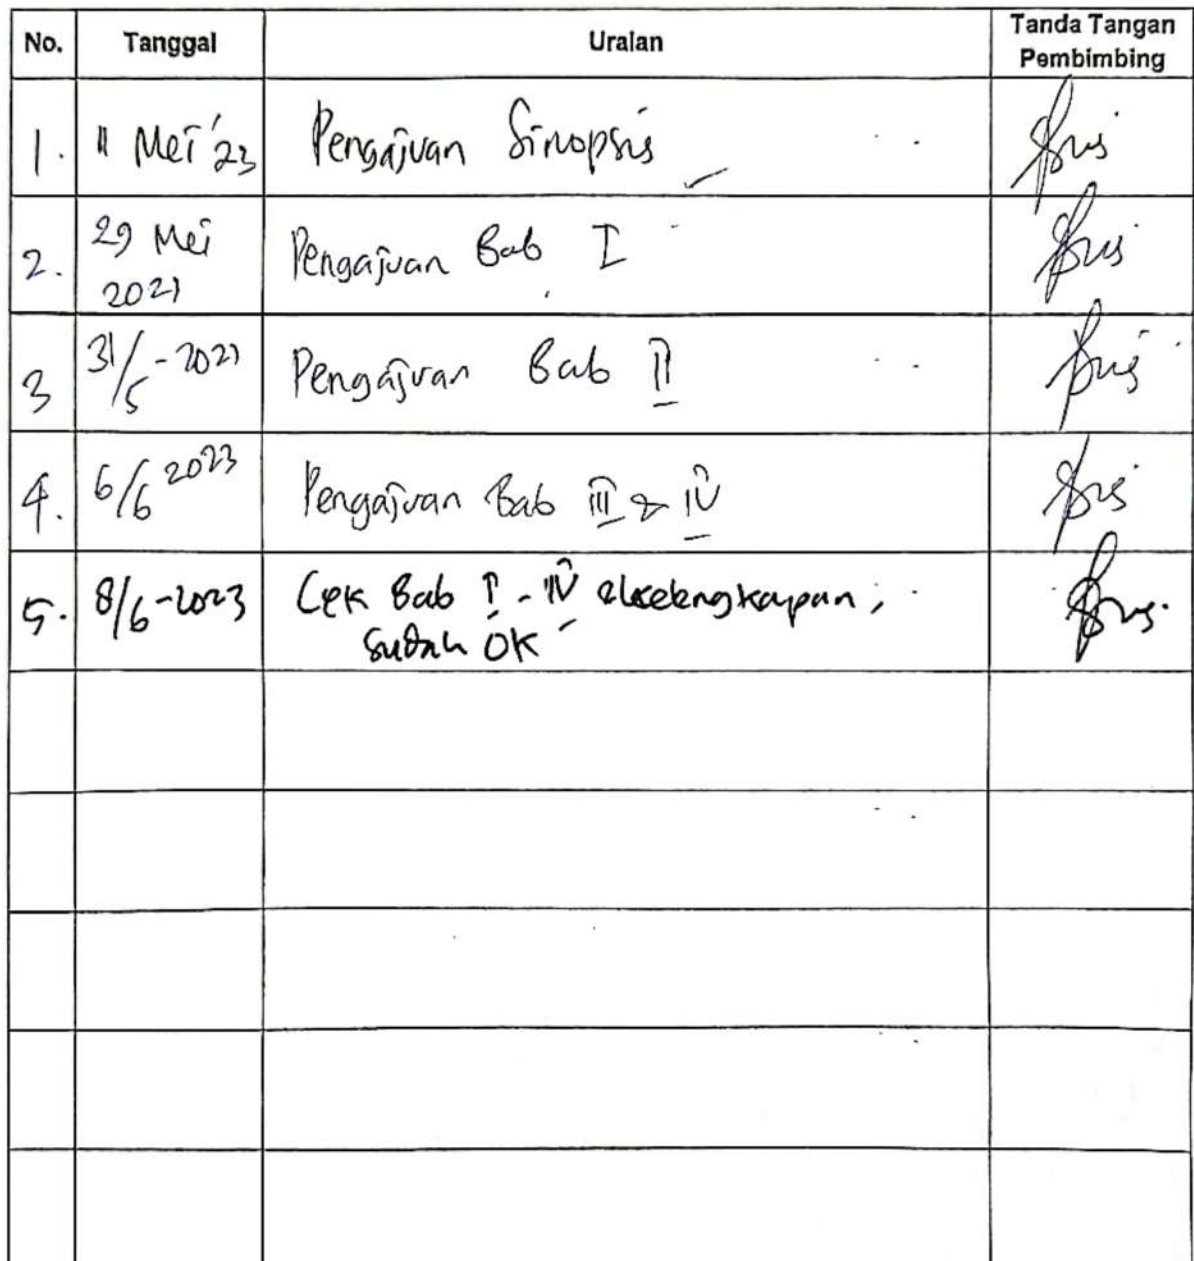 No. Tanggal Uraian Tanda Tangan
Pembimbing
1. 11 Mei '23 Pengajuan Sinopsis
2. 29 Mei
2021 Pengajuan Bab I
3 31/5 - 2021 Pengajuan Bab II
4. 6/6 2023 Pengajuan Bab III & IV
5. 8/6-2023 Cek Bab I - IV & kelengkapan ;
sudah OK